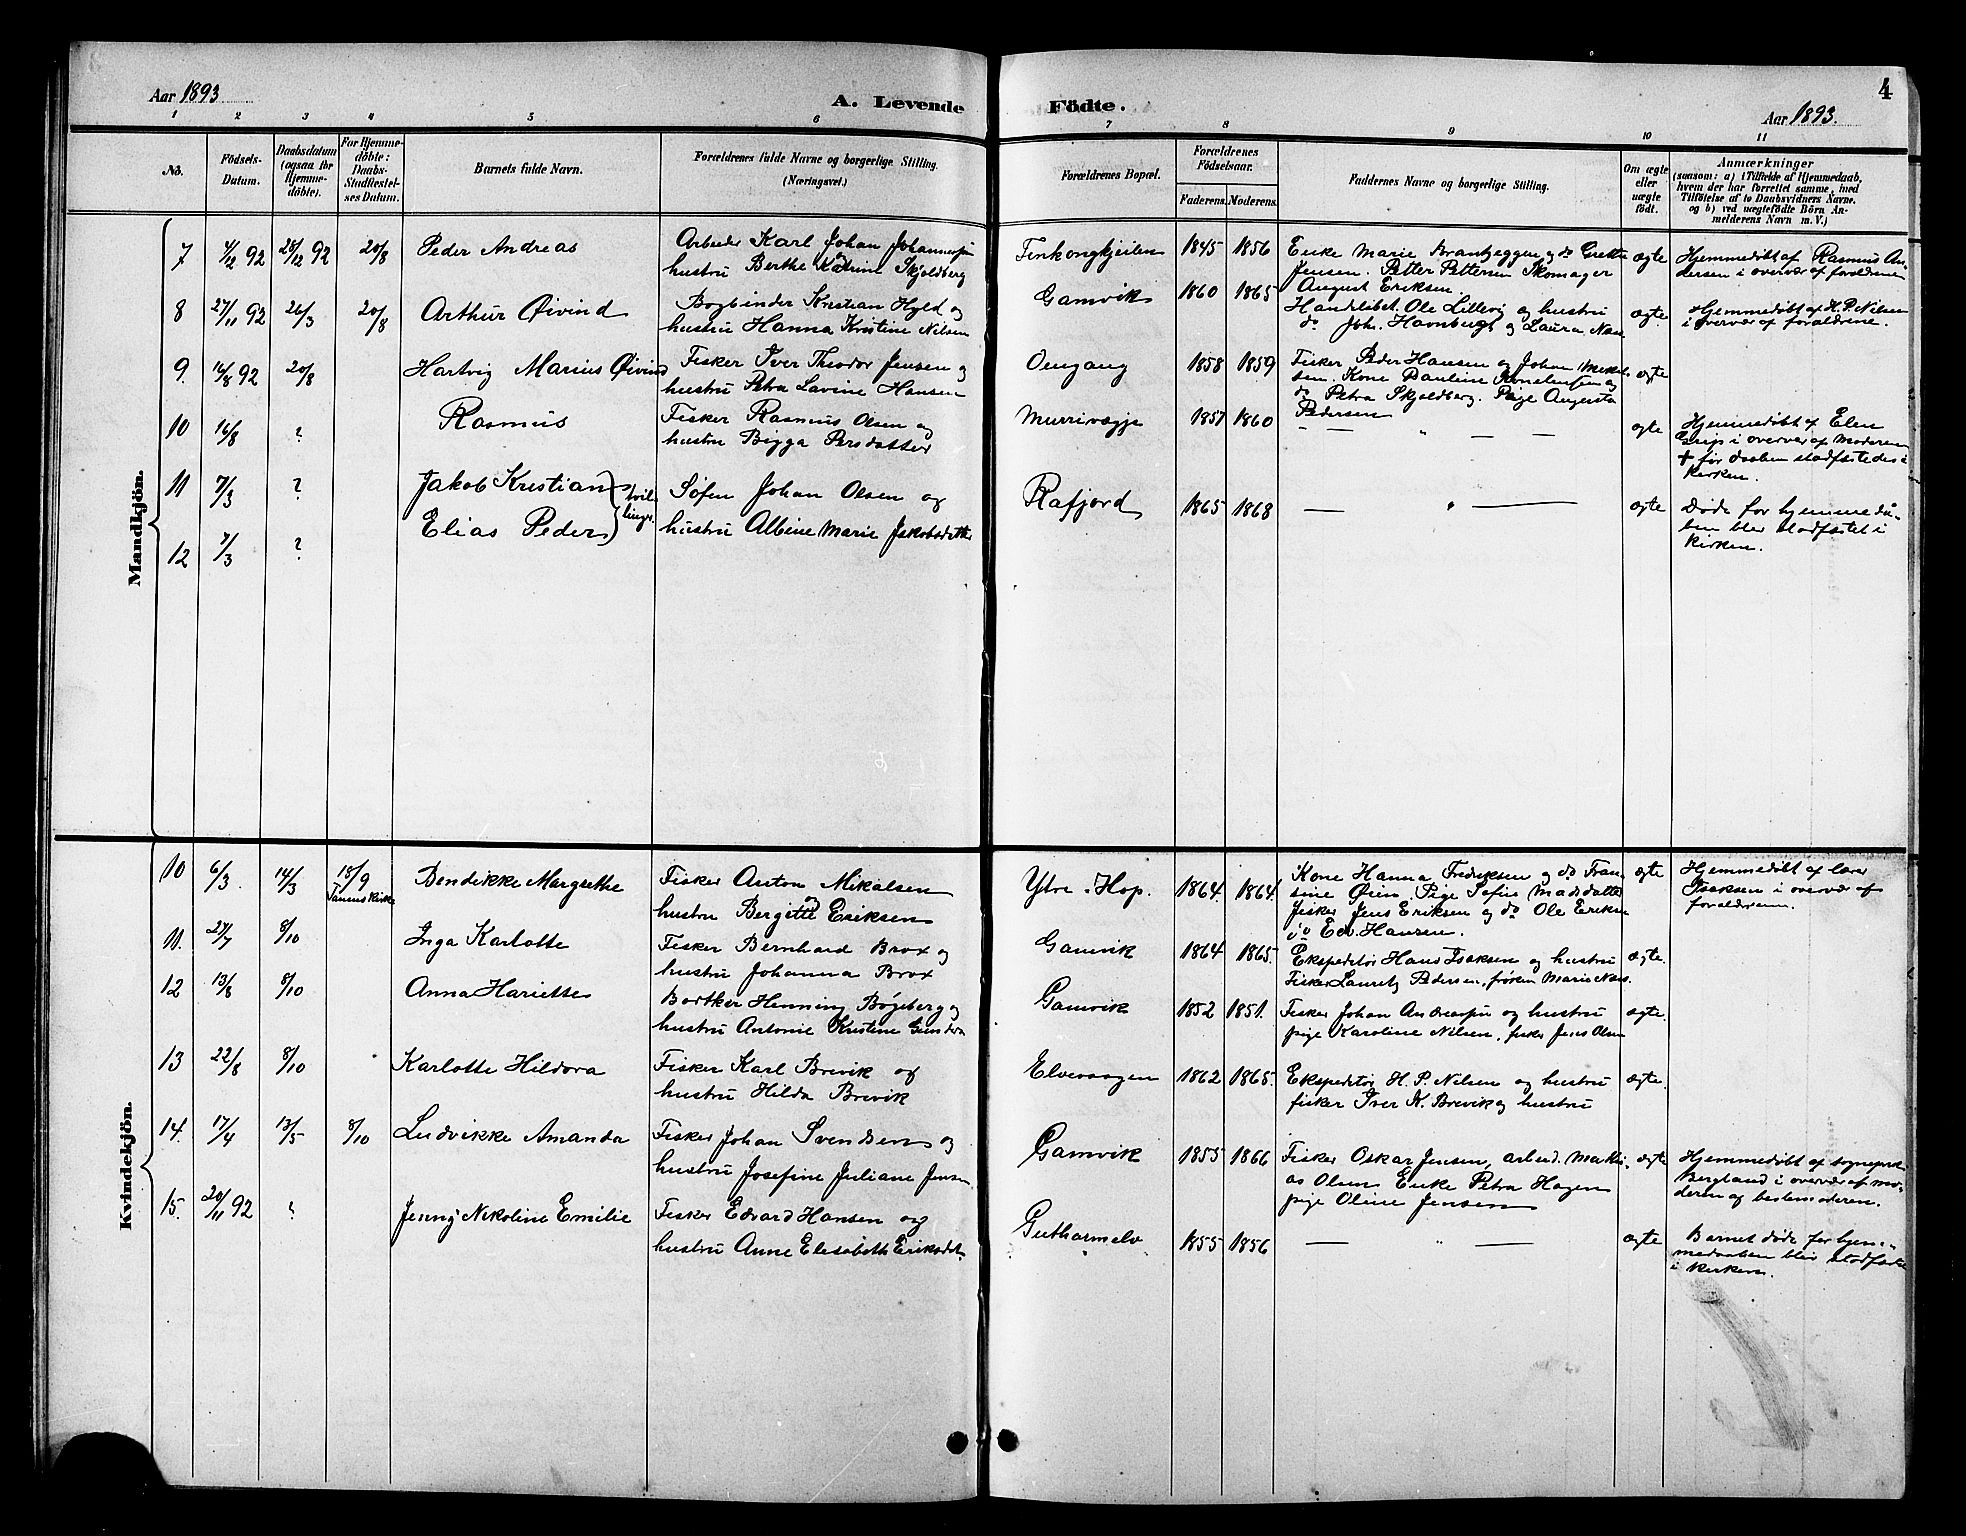 Aar 1893
A. Levende
Födte.
Aar 1893.
4
1 2 3 4 5 6 7 8 9 10 11
No.
Födsels-
Datum.
Daabsdatum
(ogsaa for
Hjemme-
döbte).
For Hjemme-
döbte:
Daabs-
Stadfæstel-
ses Datum.
Barnets fulde Navn.
Forældrenes fulde Navne og borgerlige Stilling.
(Næringsvei.)
Forældrenes Bopæl.
Forældrenes
Födselsaar.
Faderens. Moderens.
Faddernes Navne og borgerlige Stilling.
Om ægte
eller
uægte
födt.
Anmærkninger
(saasom: a) i Tilfælde af Hjemmedaab,
hvem der har forrettet samme, med
Tilföielse af to Daabsvidners Navne.
og b) ved uægtefödte Börn An-
melderens Navn m. V.)
Mandkjön.
7 4/12 92 26/12 92 20/8 Peder Andreas
Arbeider Karl Johan Johannesen og
hustru Berthe Katrine Skjoldberg
Finkongkjeilen 1845 1856
Enke Marie Brantzeggen og do Grethe
Jensen. Petter Pettersen Skomager
August Eriksen.
ægte
Hjemmedøbt af Rasmus An-
dersen i overvær af forældrene
8 27/11 92 26/3 20/8 Arthur Øivind
Bogbinder Kristian Hyld og
hustru Hanna Kristine Nilsen
Gamvik 1860 1865
Handelsbet. Ole Lillevig og hustru
do Joh. Havnbergt og Laura Næss
ægte
Hjemmedøbt af H. P. Nilsen
i overvær af forældrene.
9. 16/8 92 20/8 Hartvig Marius Øivind
Fisker Iver Theodor Jensen og
hustru Petra Lavine Hansen
Omgang 1858 1859
Fisker Peder Hansen og Johan Mikkel-
sen. Kone Pauline Kornelius­sen og
do Petra Skjoldberg. Pige Augusta
Pedersen
ægte
10 16/8 ? Rasmus
Fisker Rasmus Olsen og
hustru Bigga Persdatter
Murrivægje 1857 1860
— — " — —
ægte
Hjemmedøbt af Elen
Grip i overvær af Moderen
+ før daaben stadfæstedes i
kirken.
11 7/3 ? Jakob Kristian
tvil-
linge.
12 7/3 ? Elias Peder
Søfen Johan Olsen og
hustru Albine Marie Jakobsdatter
Rafjord 1865 1868
— " —
ægte
Døde før hjemmedaa-
ben blev stadfæstet i
kirken.
Kvindekjön.
10 6/3. 14/3 13/9
Tanens kirke
Bendikke Margrethe
Fisker Anton Mikalsen
og
hustru Bergitte Eriksen
Ytre-Hop. 1864. 1864.
Kone Hanna Fredriksen og do Fran-
sine Øien Pige Sofie Madsdatter
fisker Jens Eriksen og do Ole Eriksen
do Edv. Hansen.
ægte
Hjemmedøbt af lærer
Isaksen i overvær af
forældrene.
11. 27/7 8/10 Inga Karlotte
Fisker Bernhard Brox og
hustru Johanna Brox
Gamvik 1864 1865.
Ekspeditør Hans Isaksen og hustru
Fisker Lauritz Pedersen, frøken Marie Næss.
ægte.
12 13/8 8/10 Anna Hariette
Bødker Henning Bøgeberg og
hustru Antonie Kristine Gunders
Gamvik 1852 1851.
Fisker Johan Andreasen og hustru
pige Karoline Nilsen, fisker Jens Olsen
ægte.
13 22/8 8/10 Karlotte Hildora
Fisker Karl Brevik og
hustru Hilda Brevik
Elvevaagen 1862 1865.
Ekspeditør H. P. Nilsen og hustru
fisker Iver K. Brevik og hustru
ægte.
14. 17/4 13/5 8/10 Ludvikke Amanda
Fisker Johan Svendsen og
hustru Josefine Juliane Jensen
Gamvik 1855 1866
Fisker Oskar Jensen, arbeid. Mathi-
as Olsen Enke Petra Hagen
pige Oline Jensen
ægte
Hjemmedøbt af sogneprest
Bergland i overvær af mo-
deren og bestemoderen.
15. 20/11 92 ? Jenny Nikoline Emilie
Fisker Edvard Hansen og
hustru Anne Elisabeth Eriksdat.
Guthormelv 1855 1856
— " —
ægte
Barnet døde før hjem-
medaaben blev stadfæstet
i kirken.